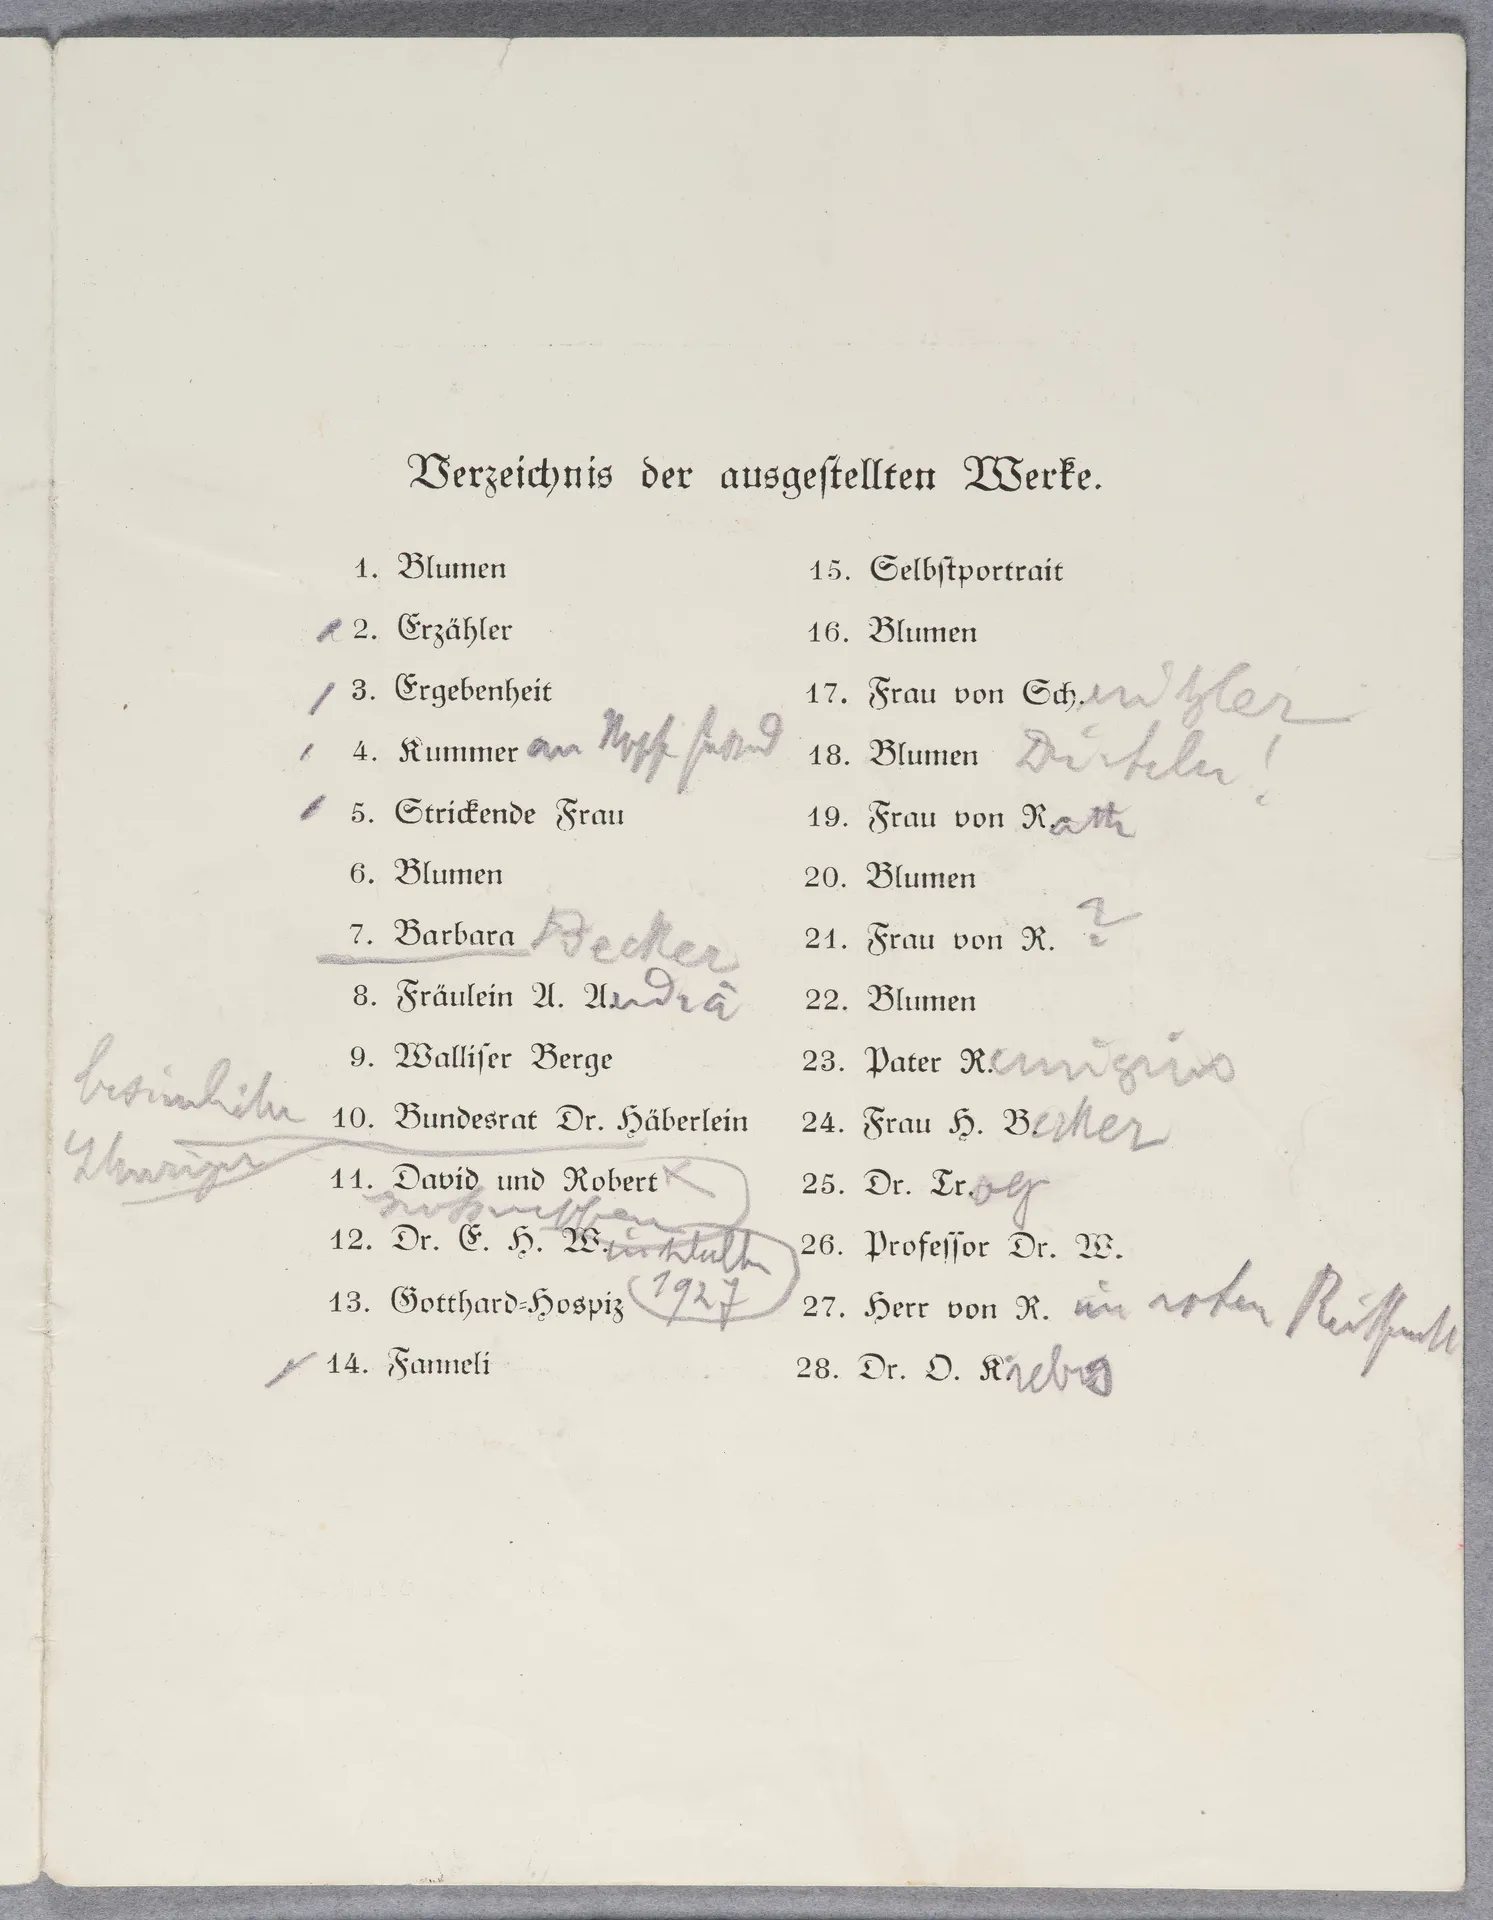 Verzeichnis der ausgestellten Werke.
1. Blumen
2. Erzähler
3. Ergebenheit
4. Kummer am
5. Strickende Frau
6. Blumen
7. Barbara Becker
8. Fräulein A. A.ndrä
9. Walliser Berge
10. Bundesrat Dr. Häberlein
11. David und Robert
12. Dr. E. H. W.
1927
13. Gotthard-Hospiz
14. Fanneli
15. Selbstportrait
16. Blumen
17. Frau von Sch.nitzler
18. Blumen Disteln!
19. Frau von R.ath
20. Blumen
21. Frau von R. ?
22. Blumen
23. Pater R.emigius
24. Frau H. Becker
25. Dr. Tr.
26. Professor Dr. W.
27. Herr von R. im roten
28. Dr. O. K.rebs